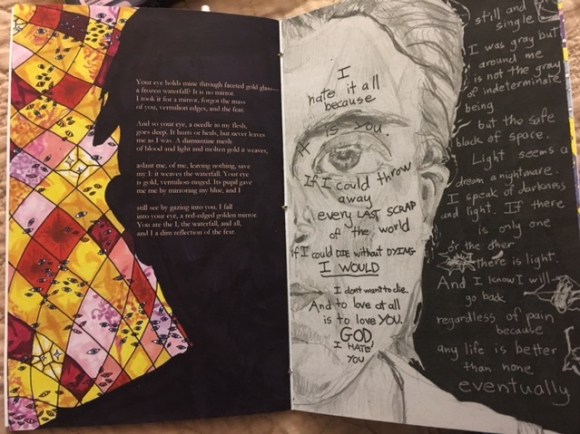 Your eye holds mine through faceted gold glass—
a frozen waterfall? It is no mirror.
I took it for a mirror, forgot the mass
of you, vermilion edges, and the fear.
And so your eye, a needle in my flesh,
goes deep. It hurts or heals, but never leaves
me as I was. A diamantine mesh
of blood and light and molten gold it weaves,
me, of me, leaving nothing, save
my I: it weaves the waterfall. Your eye
is gold, vermilion-ringed. Its pupil gave
me me by mirroring my blue, and I
still see by gazing into you. I fall
into your eye, a red-edged golden mirror.
You are the I, the waterfall, and all,
and I a dim reflection of the fear.
I
hate it all
because
it is you.
If I could throw
away
every LAST SCRAP
of the world
If I could DIE without DYING
I WOULD
I dont want to die.
And to love at all
is to love YOU.
GOD,
I HATE
YOU
still and
single
I was gray but
around me
is not the gray
of indeterminate
being
but the safe
black of space.
Light seems a
dream, a nightmare.
I speak of darkness
and light If there
is only one
or the other
there is light.
And I know I will
go back
regardless of pain
because
any life is better
than none
eventually